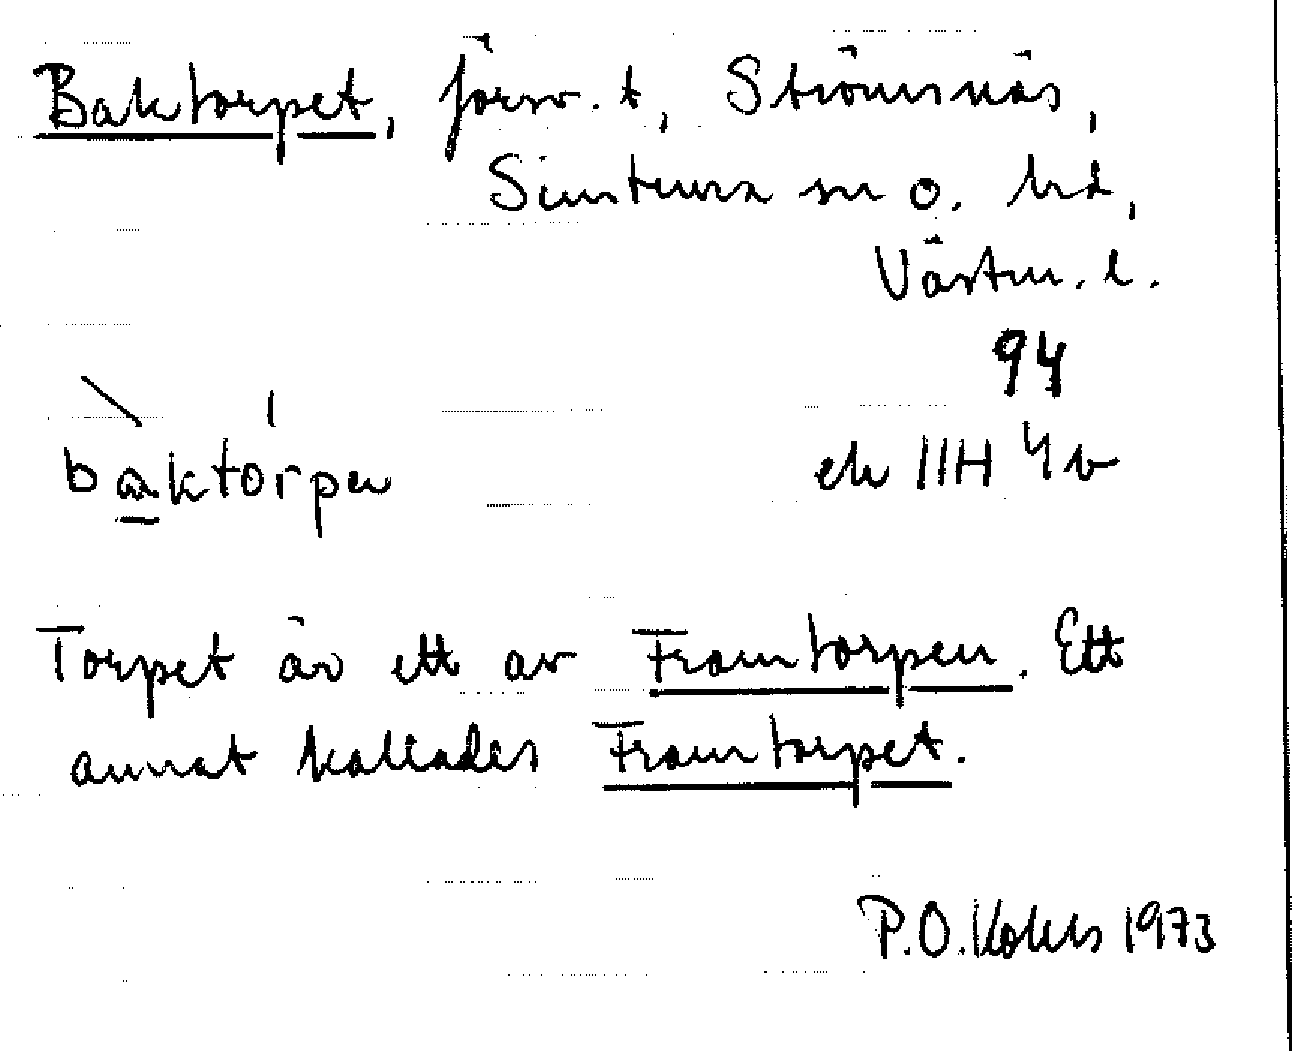 Baktorpet, försv. t, Strömsnäs,
Simtuna sn o. hd,
Västm. l.
94
baktorpen
ek 11H 4b
Torpet är ett av Framtorpen. Ett
annat kallades Framtorpet.
P.O. 1973